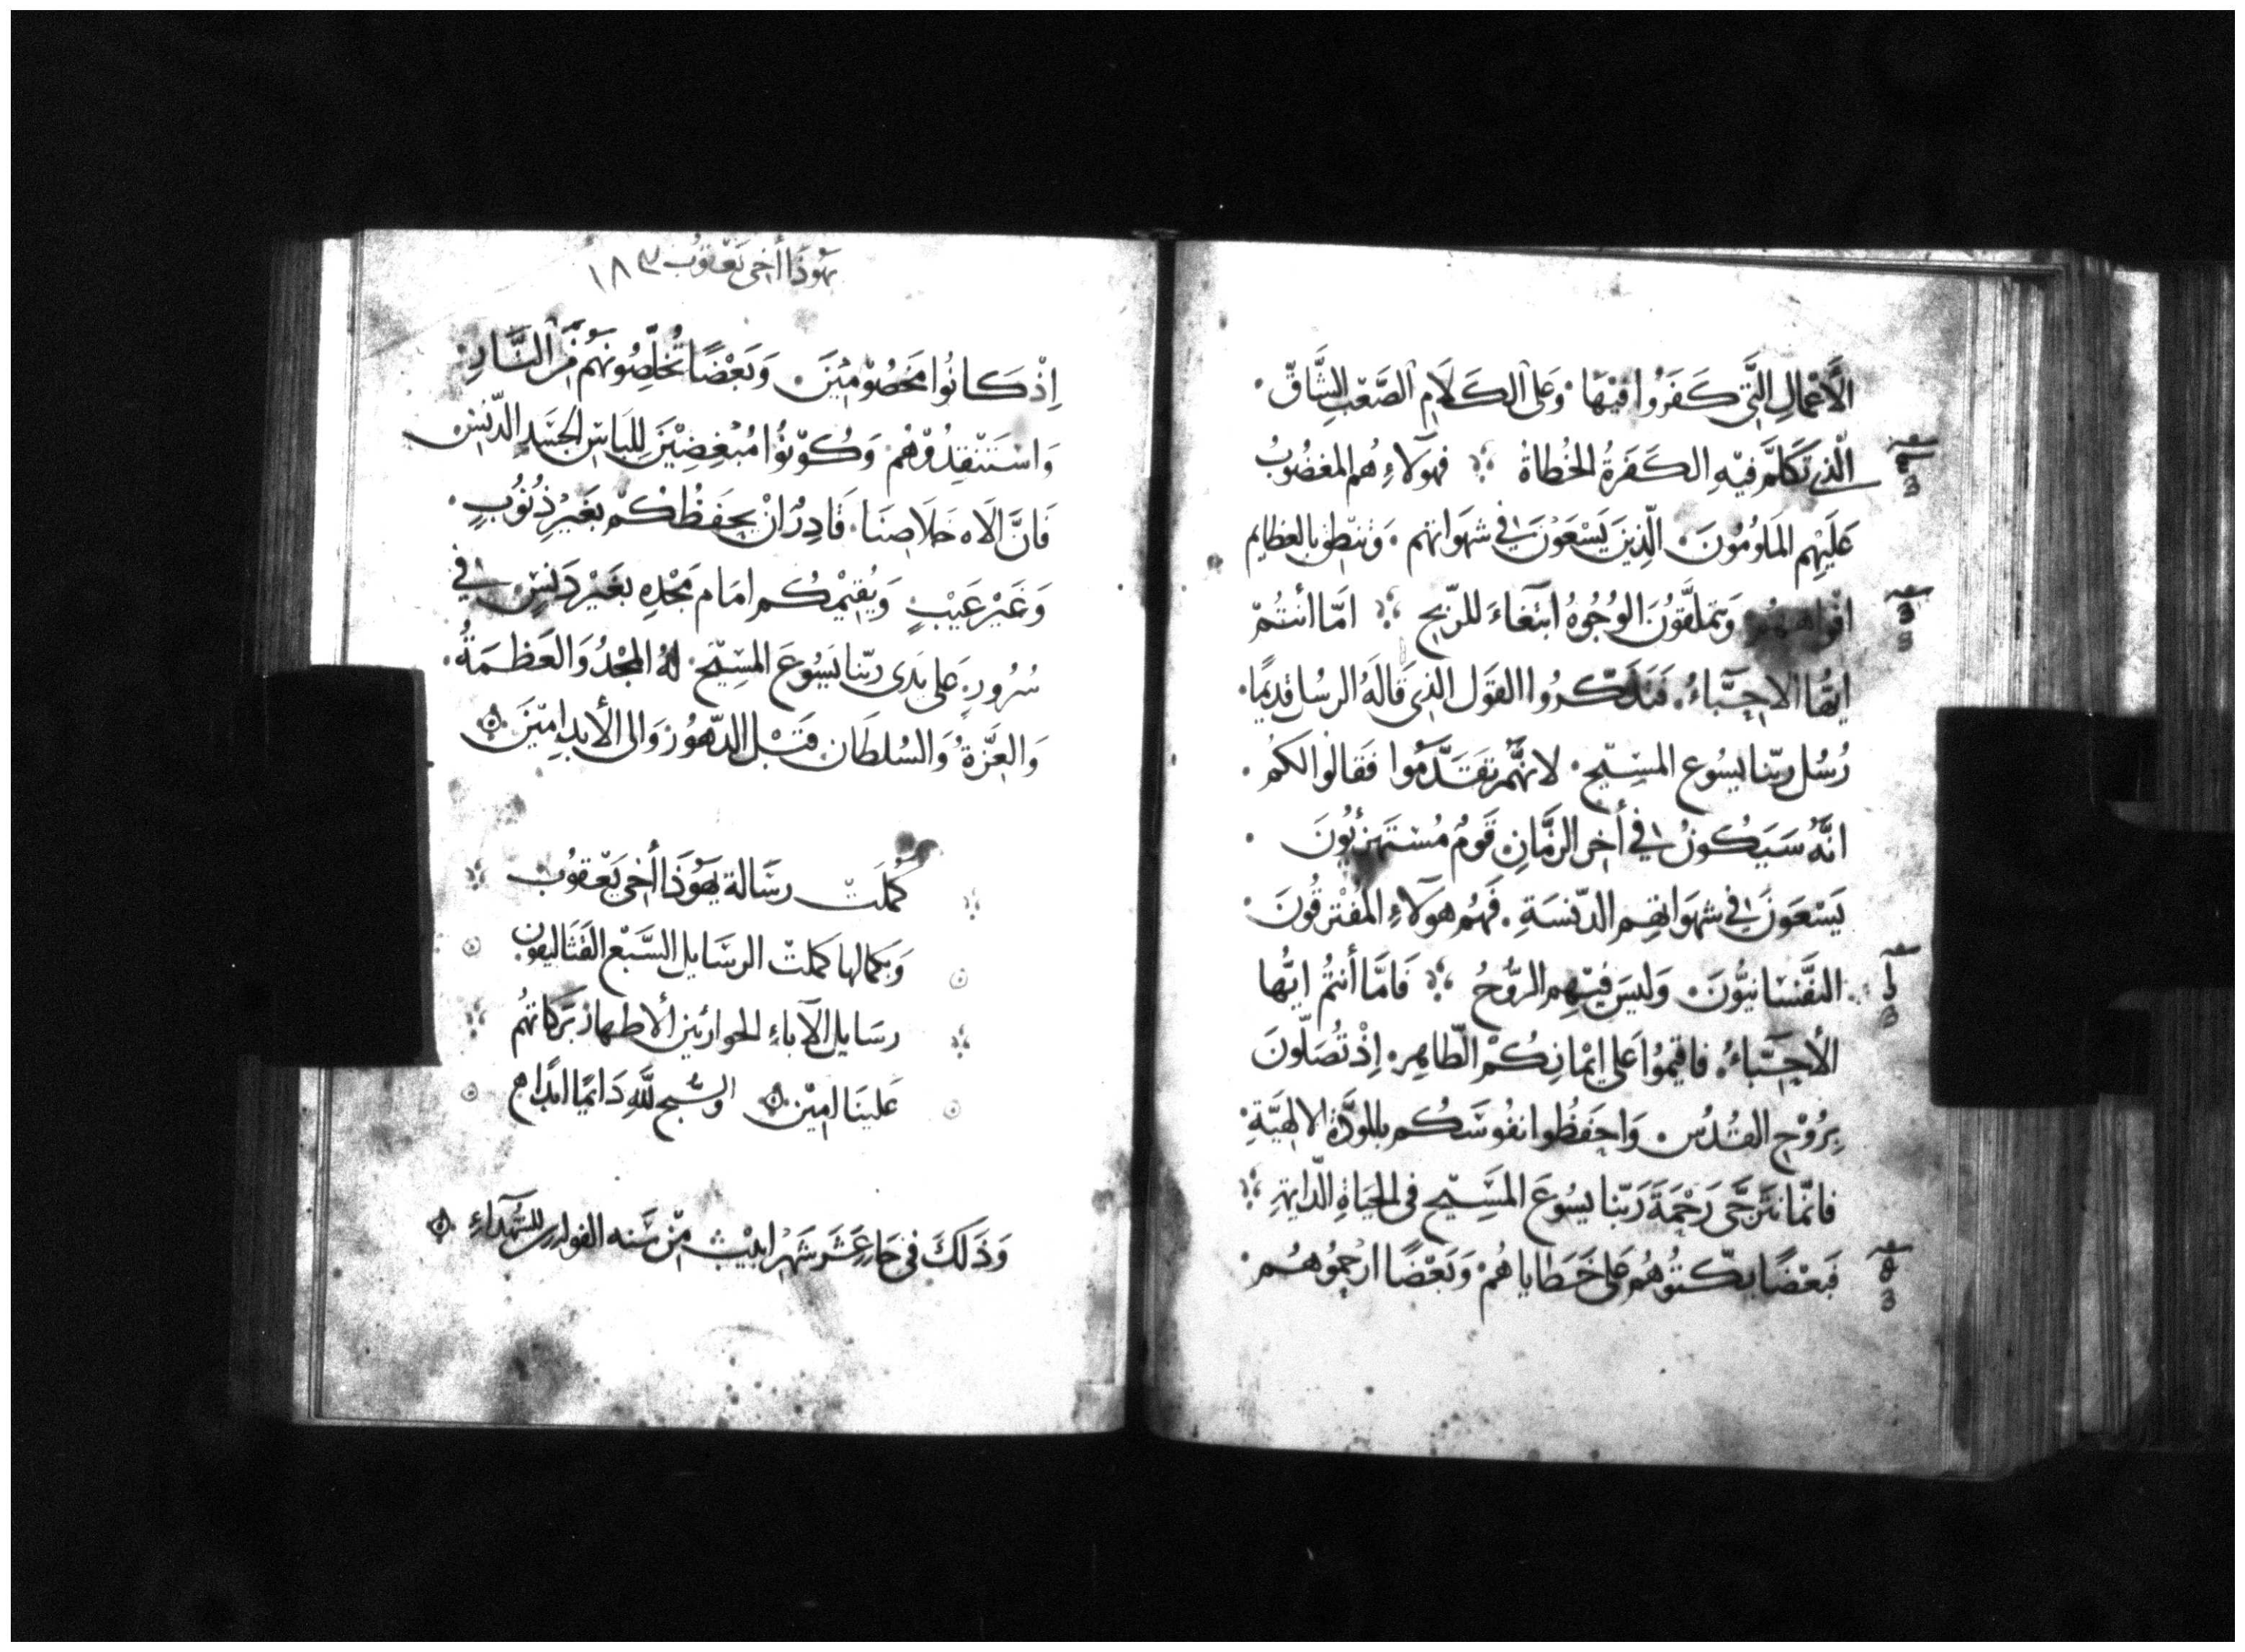 الأعْمَالِ الَّتِي كَفَرُوا فِيْهَا. وَعَلى الكَلَامِ الصَّعْبِ الشَّاقّ.
الّذِي تَكَلَّمَ فِيْهِ الكَفَرَةُ الخُطاةُ فهَولَاءِ هُم المغضُوبُ
عَلَيْهِم المَلُومُونَ. الّذِينَ يَسْعَوْنَ فِي شهَواتهم. وَتنطِق بالعظايم
افْواههُم وَيتملَّقُونَ الوُجُوهُ ابْتغَاءَ للرّبح امّا أنتُمْ
ايّهَا الاحِبَّاءُ. فَتذَكّرُوا القوَل الذِي قَالَهُ الرسُل قدِيمًا.
رُسُل ربّنا يسُوع المسِيّح. لانَّهُم تقَدَّمُوا فَقَالُوا لكم.
انَّهُ سَيَكُونُ فِي أخِر الزَّمَانِ قَومٌ مُسْتَهزئُونَ.
يَسْعَونَ فِي شهَواتهِم الدّنسَةِ. فَهُم هَولَاءِ المُفْترقُونَ.
النَّفْسَانيُّونَ. وَليسَ فيْهِم الرُّوحُ فَامَّا أنتُم ايُّها
الأحِبَّاءُ. فاقيْمُوا عَلى ايْمَانِكُمْ الطّاهِر. إذْ تُصَلّونَ
بِرُوْحِ القُدُسْ. وَاحفَظُوا نفُوسَكُم بالمودَّة الالهِيَّةِ.
فانّما نتَرجَّى رَحْمَةَ رَبّنا يسُوعَ المسَيّح فى الحيَاةِ الدّايمةِ
فَبَعْضًا بكّتُوْهُم عَلى خَطَاياهُمْ. وَبَعْضًا ارحمُوهُم.
يَهُوذَا أخِى يَعْقوُب ١٨٣
إذْ كَانُوا مَخصُوْمِيْنَ. وَبَعْضًا تُخلّصُونهُم مّن النّارِ.
وَاسْتَنْقِذُوْهُم. وَكُوْنُوْا مُبْغِضِيْنَ لِلِبَاسِ الجسَدِ الدّنِسْ
فَانَّ الَاه خَلَاصِنَا. قَادِرٌ انْ يحفَظُكُم بغَيْر ذُنُوُبٍ.
وَغَيْر عَيْبٍ وَيُقِيْمكُم امَام مَجْدِه بغَيْر دَنسٍ فِي
سُرُورٍ. عَلى يَدَى ربّنا يَسُوعَ المسِيّح. لهُ المجْدُ وَالعَظمَةُ.
وَالعِزَّةُ وَالسُلطَان قَبْل الدّهُورْ وَالى الأبد امِيْنَ
كمُلَتْ رسَالة يهُوذَا أخِى يَعْقوُب
وَبكمالها كملتْ الرسَايل السَّبْع القَثَاليقون
رسَايل الآباءِ الحواريّين الأطهار بَركَاتهُم
عَلينَا امِيْن والسّبح للَّهِ دَايمًا ابدًا
وَذَلكَ فى حَادِ عَشَر شَهْر ابيْبْ مِنْ سَنه الف للشّهدَاءِ